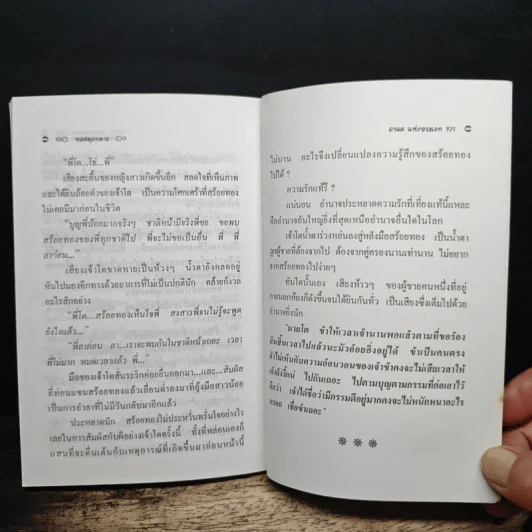 190
"พี่โต...โธ่...พี่"
เสียงสะอื้นของหญิงสาวเกิดขึ้นอีก สลดใจที่เห็นภาพ
และได้ยินถ้อยคำของเจ้าโต เป็นความโศกเศร้าที่สร้อยทอง
ไม่เคยมีมาก่อนในชีวิต
"บุญพี่น้อยมากจริงๆ ชาติหน้ามีจริงพี่ขอ ขอพบ
สร้อยทองของพี่ทุกชาติไป พี่จะไม่ขอเป็นอื่น พี่ พี่
ลาก่อน..."
เสียงเจ้าโตขาดหายเป็นห้วงๆ น้ำตายังคลออยู่
หันไปมองอีกทางด้วยอาการที่ไม่เป็นปกตินัก คล้ายกังวล
อะไรสักอย่าง
"พี่โต...สร้อยทองเห็นใจพี่ สงสารพี่จนไม่รู้จะพูด
ยังไงแล้ว..."
"พี่ลาก่อน ลา...เราจะพบกันในชาติหน้าเถอะ เวลา
พี่ไม่มาก หมดเวลาแล้ว พี่..."
มือของเจ้าโตสั่นระริกค่อยยื่นออกมา...และ...สัมผัส
ที่ท่อนแขนสร้อยทองแล้วเลื่อนต่ำลงมาที่อุ้งมือสาวน้อย
เป็นการอำลาที่ไม่มีวันกลับมาอีกแล้ว
ประหลาดนัก สร้อยทองไม่ประหวั่นพรั่นใจอย่างไร
เลยในการสัมผัสกับผีอย่างเจ้าโตครั้งนี้ ทั้งที่หล่อนเองก็
แสนที่จะตื่นเต้นกับเหตุการณ์ที่เกิดขึ้นมาก่อนหน้านี้
191
ไม่นาน อะไรจึงเปลี่ยนแปลงความรู้สึกของสร้อยทอง
ไปได้ ?
ความรักแท้รึ ?
แน่นอน อำนาจประหลาดความรักที่เที่ยงแท้นี้แหละ
คืออำนาจอันใหญ่ยิ่งที่สุดเหนืออำนาจอื่นใดในโลก
เจ้าโตน้ำตาร่วงหล่นลงสู่หลังมือสร้อยทอง เป็นน้ำตา
ลูกผู้ชายที่ต้องจากไป ต้องจากคู่ครองนานเท่านาน ไม่อยาก
จากสร้อยทองไปง่ายๆ
ทันใดนั้นเอง เสียงห้าวๆ ของผู้ชายคนหนึ่งที่อยู่
ภายนอกห้องก็ดังขึ้นจนได้ยินกันทั่ว เป็นเสียงซึ่งเต็มไปด้วย
อำนาจยิ่งนัก
"นายโต ข้าให้เวลาเจ้านานพอแล้วตามที่ขอร้อง
มันสิ้นเวลาไปแล้วนะมัวอ้อยอิ่งอยู่ได้ ข้าเป็นคนตรง
ถ้าไม่เห็นกับความอ้อนวอนของเจ้าข้าคงจะไม่เสียเวลาให้
ไปกันเถอะ ไปตามบุญตามกรรมที่ก่อเอาไว้
ดีกว่า เจ้าได้ชื่อว่ามีกรรมดีอยู่มากคงจะไม่หนักหนาอะไร
เชื่อข้าเถอะ"